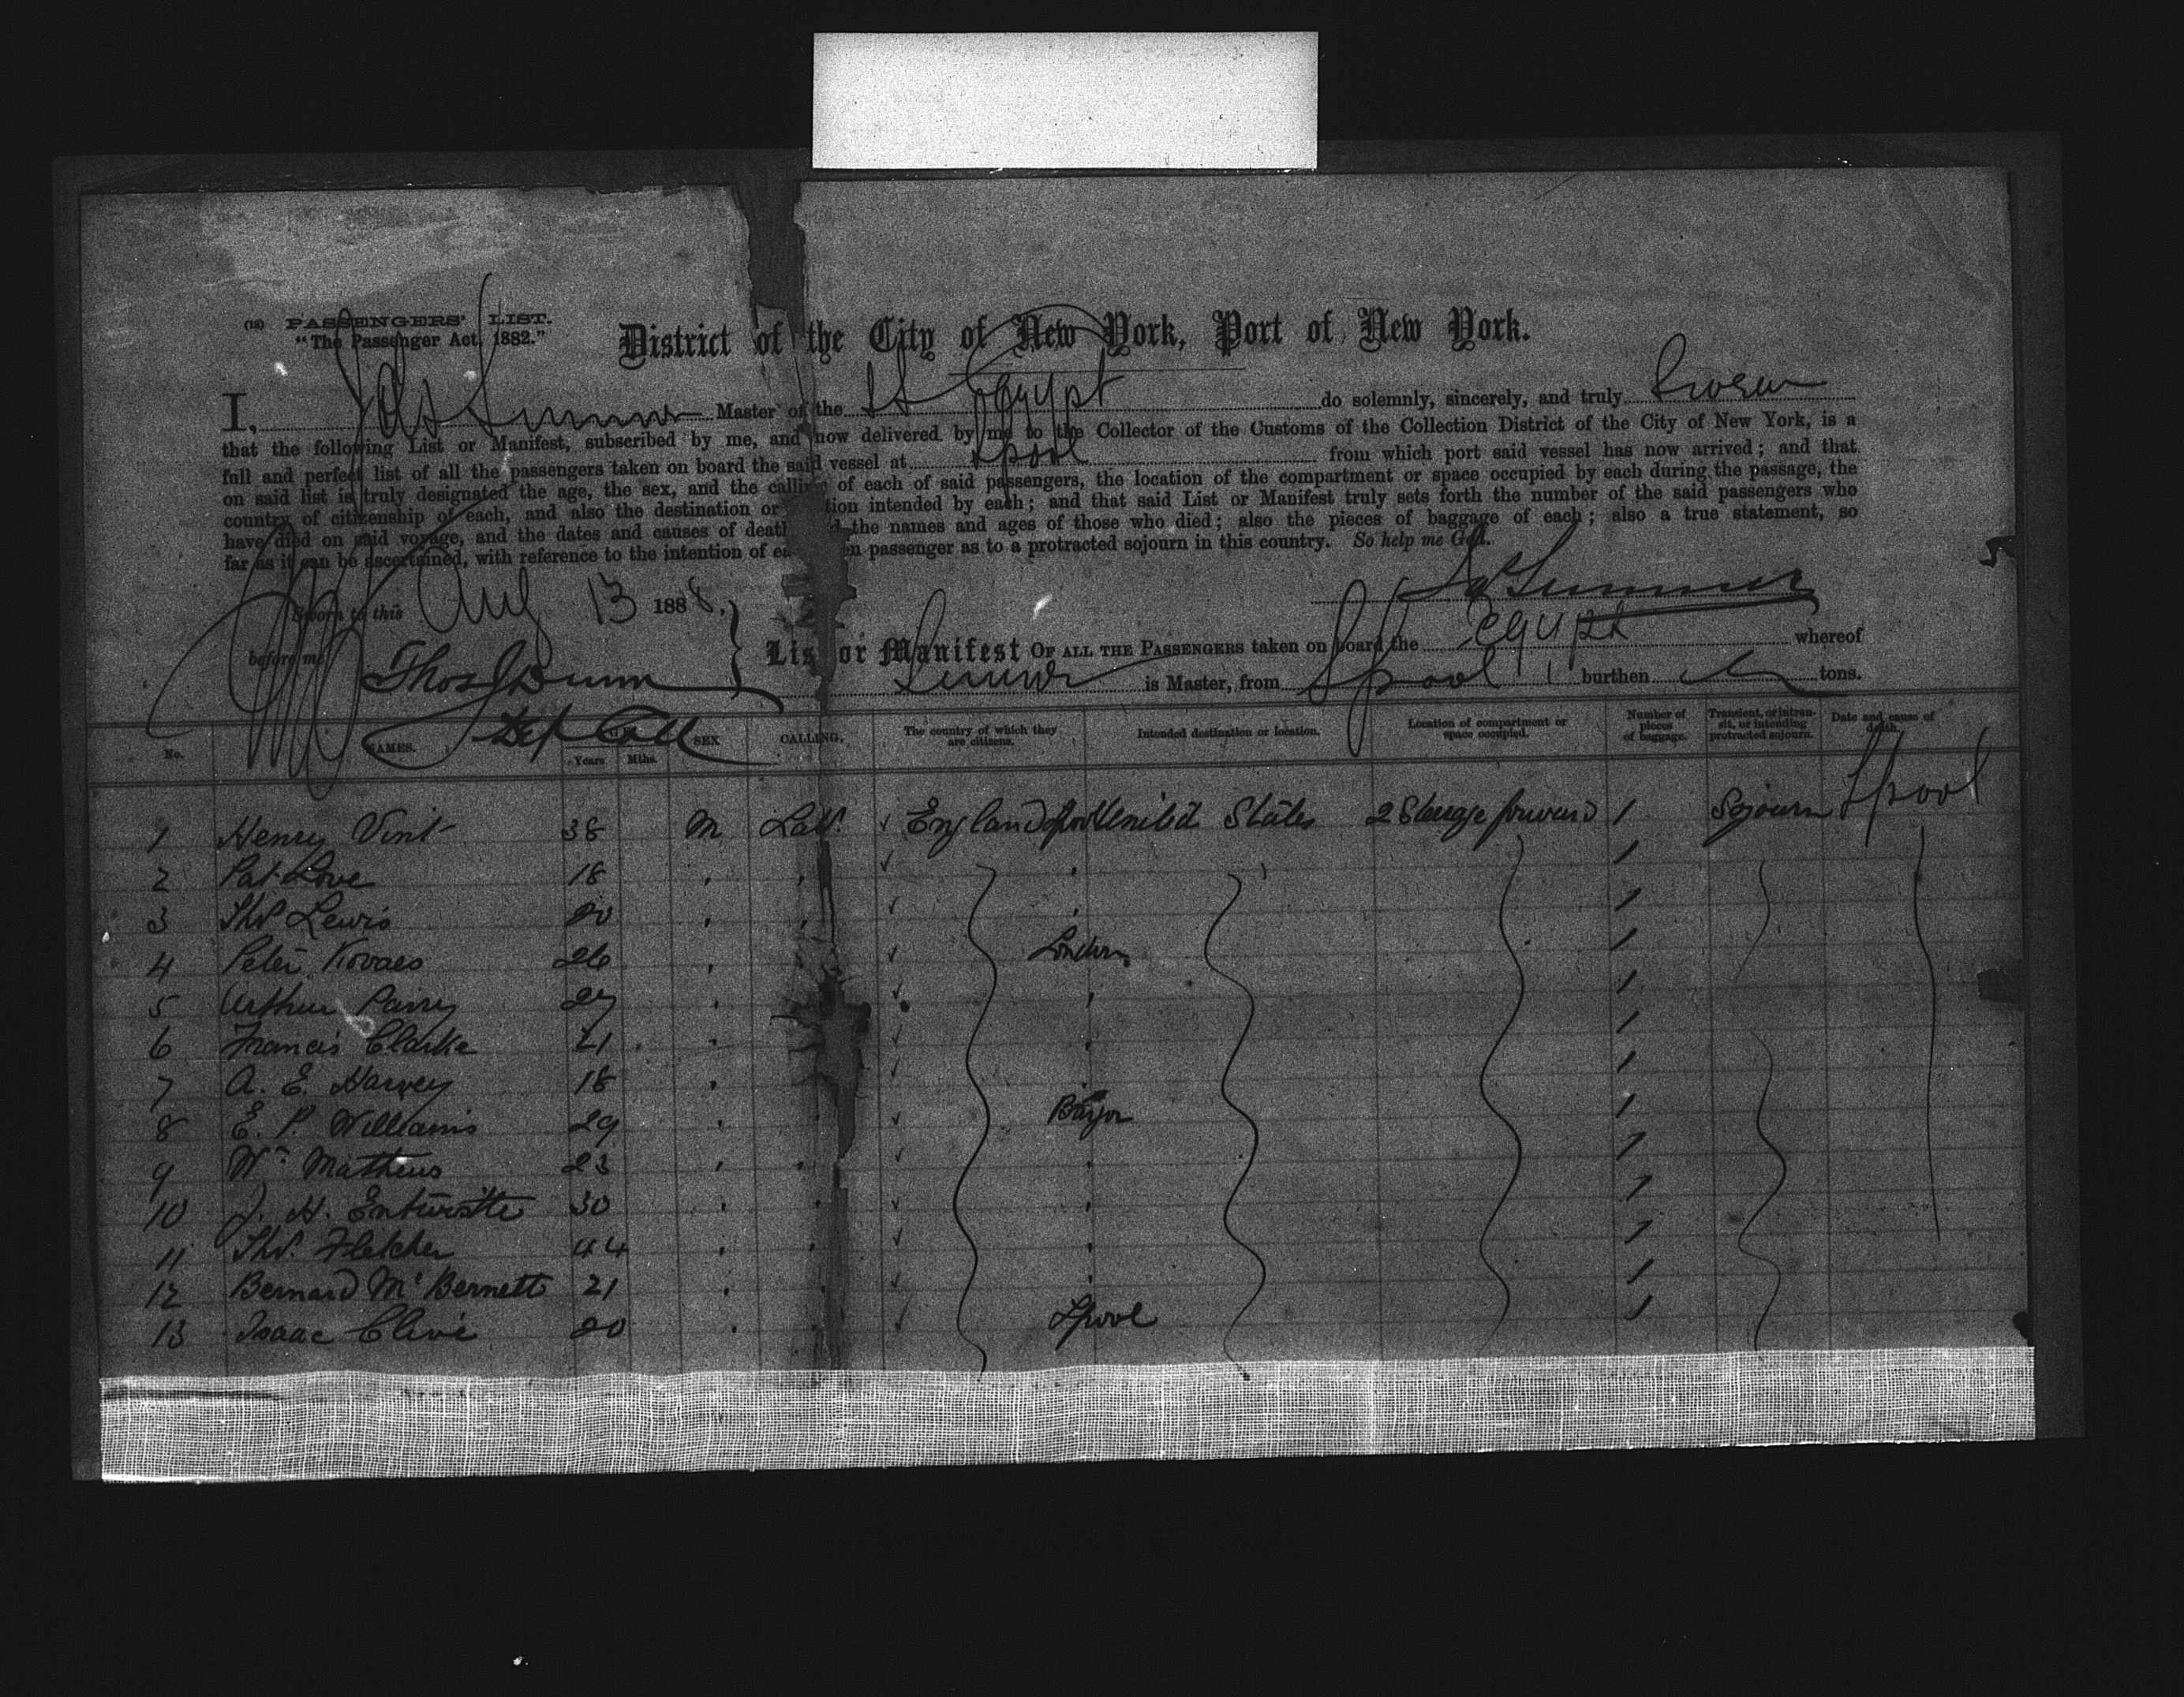 (18) PASSENGERS' LIST.
"The Passenger Act, 1882."
District of the City of New York, Port of New York.
I, Jas Sumner Master of the SS Egypt do solemnly, sincerely, and truly Swear
that the following List or Manifest, subscribed by me, and now delivered by me to the Collector of the Customs of the Collection District of the City of New York, is a
full and perfect list of all the passengers taken on board the said vessel at Lpool from which port said vessel has now arrived; and that
on said list is truly designated the age, the sex, and the calling of each of said passengers, the location of the compartment or space occupied by each during the passage, the
country of citizenship of each, and also the destination or tion intended by each; and that said List or Manifest truly sets forth the number of the said passengers who
have died on said voyage, and the dates and causes of death the names and ages of those who died; also the pieces of baggage of each; also a true statement, so
far as it can be ascertained, with reference to the intention of ea en passenger as to a protracted sojourn in this country. So help me God.
Sworn to this Aug 13 1888. Jas Sumner
before me Thos J Dunn
Dep Coll
List or Manifest OF ALL THE PASSENGERS taken on board the Egypt whereof
Sumner is Master, from Lpool burthen tons.
No. NAMES. Years Mths. SEX CALLING. The country of which they are citizens. Intended destination or location. Location of compartment or space occupied. Number of pieces of baggage. Transient, or intransit, or intending protracted sojourn. Date and cause of death.
1 Henry Vint 38 M Labr. England Lpool United States 2 Steerage forward 1 Sojourn Lpool
2 Pat Love 18 1
3 Thos Lewis 20 1
4 Peter Kovacs 26 London 1
5 Arthur Parry 27 1
6 Francis Clarke 21 1
7 A. E. Harvey 18 1
8 E. P. Williams 29 Bangor 1
9 Wm Mathews 23 1
10 J. H. Entwistle 30 1
11 Thos. Fletcher 44 1
12 Bernard Mc Bernett 21 1
13 Isaac Clive 20 Lpool 1